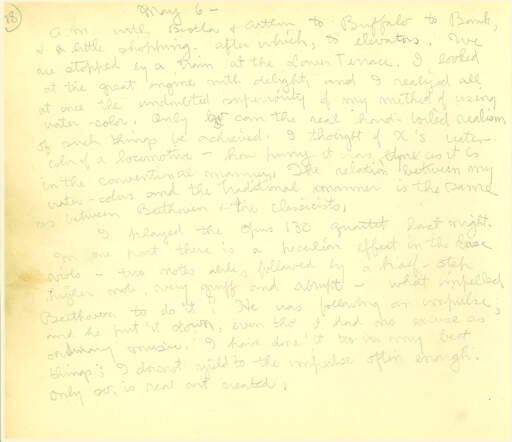 18
May 6 —
A.M. with Bertha & Arthur to Buffalo to Bank,
& a little shopping. After which, to elevators. We
are stopped by a train at the Lower Terrace. I looked
at the great engine with delight, and I realized all
at once the undoubted superiority of my method of using
water-color. Only so can the real hard-boiled realism
of such things be achieved. I thought of X's water-
color of a locomotive – how puny it was, done as it is
in the conventional manner. The relation between my
water-colors and the traditional manner is the same
as between Beethoven & the classicists.
I played the Opus 130 quartet last night.
In one part there is a peculiar effect in the base
viols – two notes alike, followed by a half-step
higher note, very gruff and abrupt – what impelled
Beethoven to do it! He was following an impulse;
and he put it down, even tho' it had no excuse as
ordinary music. I have done it too in my best
things; I do not yield to the impulse often enough.
Only so, is real art created.